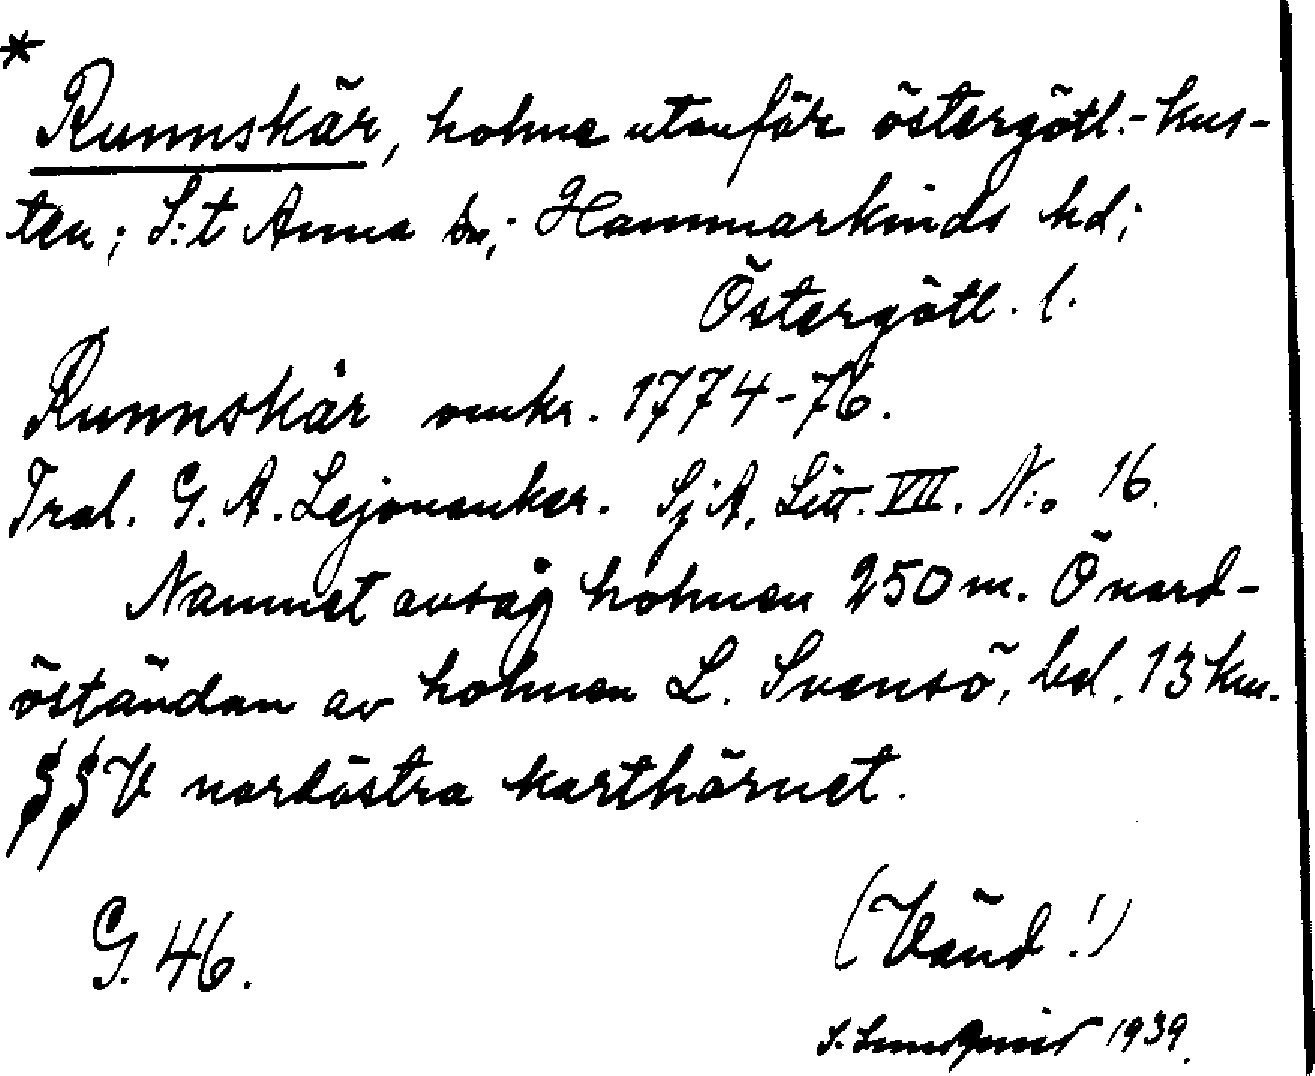 *
Runnskär, holme utanför östergötl.-kus-
ten; S:t Anna sn; Hammarkinds hd;
Östergötl. l.
Runnskär omkr. 1774-76.
Tral. G. A. Lejonanker. SjA, Litt. VII. N:o 16.
Namnet avsåg holmen 250 m. Ö nord-
öständan av holmen L. Svensö, bel. 13 km.
§§ V nordöstra karthörnet.
G. 46.
(Vänd!)
S. Lundqvist 1939.